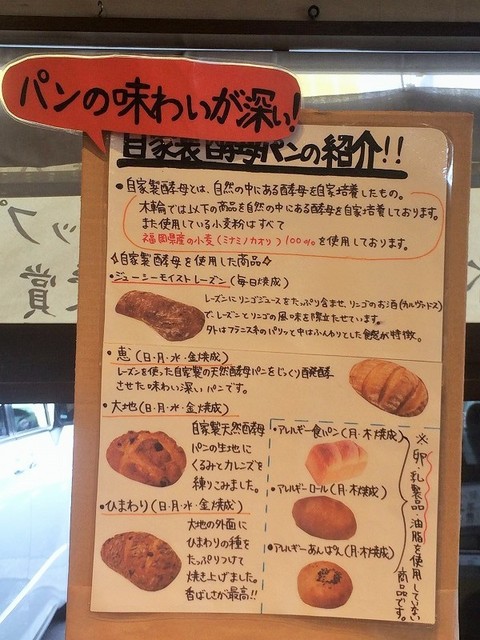 パンの味わいが深い!
自家製酵母パンの紹介!!
・自家製酵母とは、自然の中にある酵母を自家培養したもの。
木輪では以下の商品を自然の中にある酵母を自家培養しております。
また使用している小麦粉はすべて
福岡県産の小麦(ミナミノカオリ)100%を使用しております。
◇自家製酵母を使用した商品◇
・ジューシーモイストレーズン(毎日焼成)
レーズンにリンゴジュースをたっぷり含ませ、リンゴのお酒(カルヴァドス)
で、レーズンとリンゴの風味を際立たせています。
外はフランス系のパリッと中はふんわりとした食感が特徴。
・恵(日・月・水・金焼成)
レーズンを使った自家製の天然酵母パンをじっくり発酵
させた味わい深いパンです。
・大地(日・月・水・金焼成)
自家製天然酵母
パンの生地に
くるみとカレンズを
練りこみました。
・ひまわり(日・月・水・金焼成)
大地の外面に
ひまわりの種を
たっぷりつけて
焼き上げました。
香ばしさが最高!!
・アレルギー食パン(月・木焼成)
・アレルギーロール(月・木焼成)
・アレルギーあんぱん(月・木焼成)
※卵・乳製品・油脂を使用していない
商品です。
ップ
賞